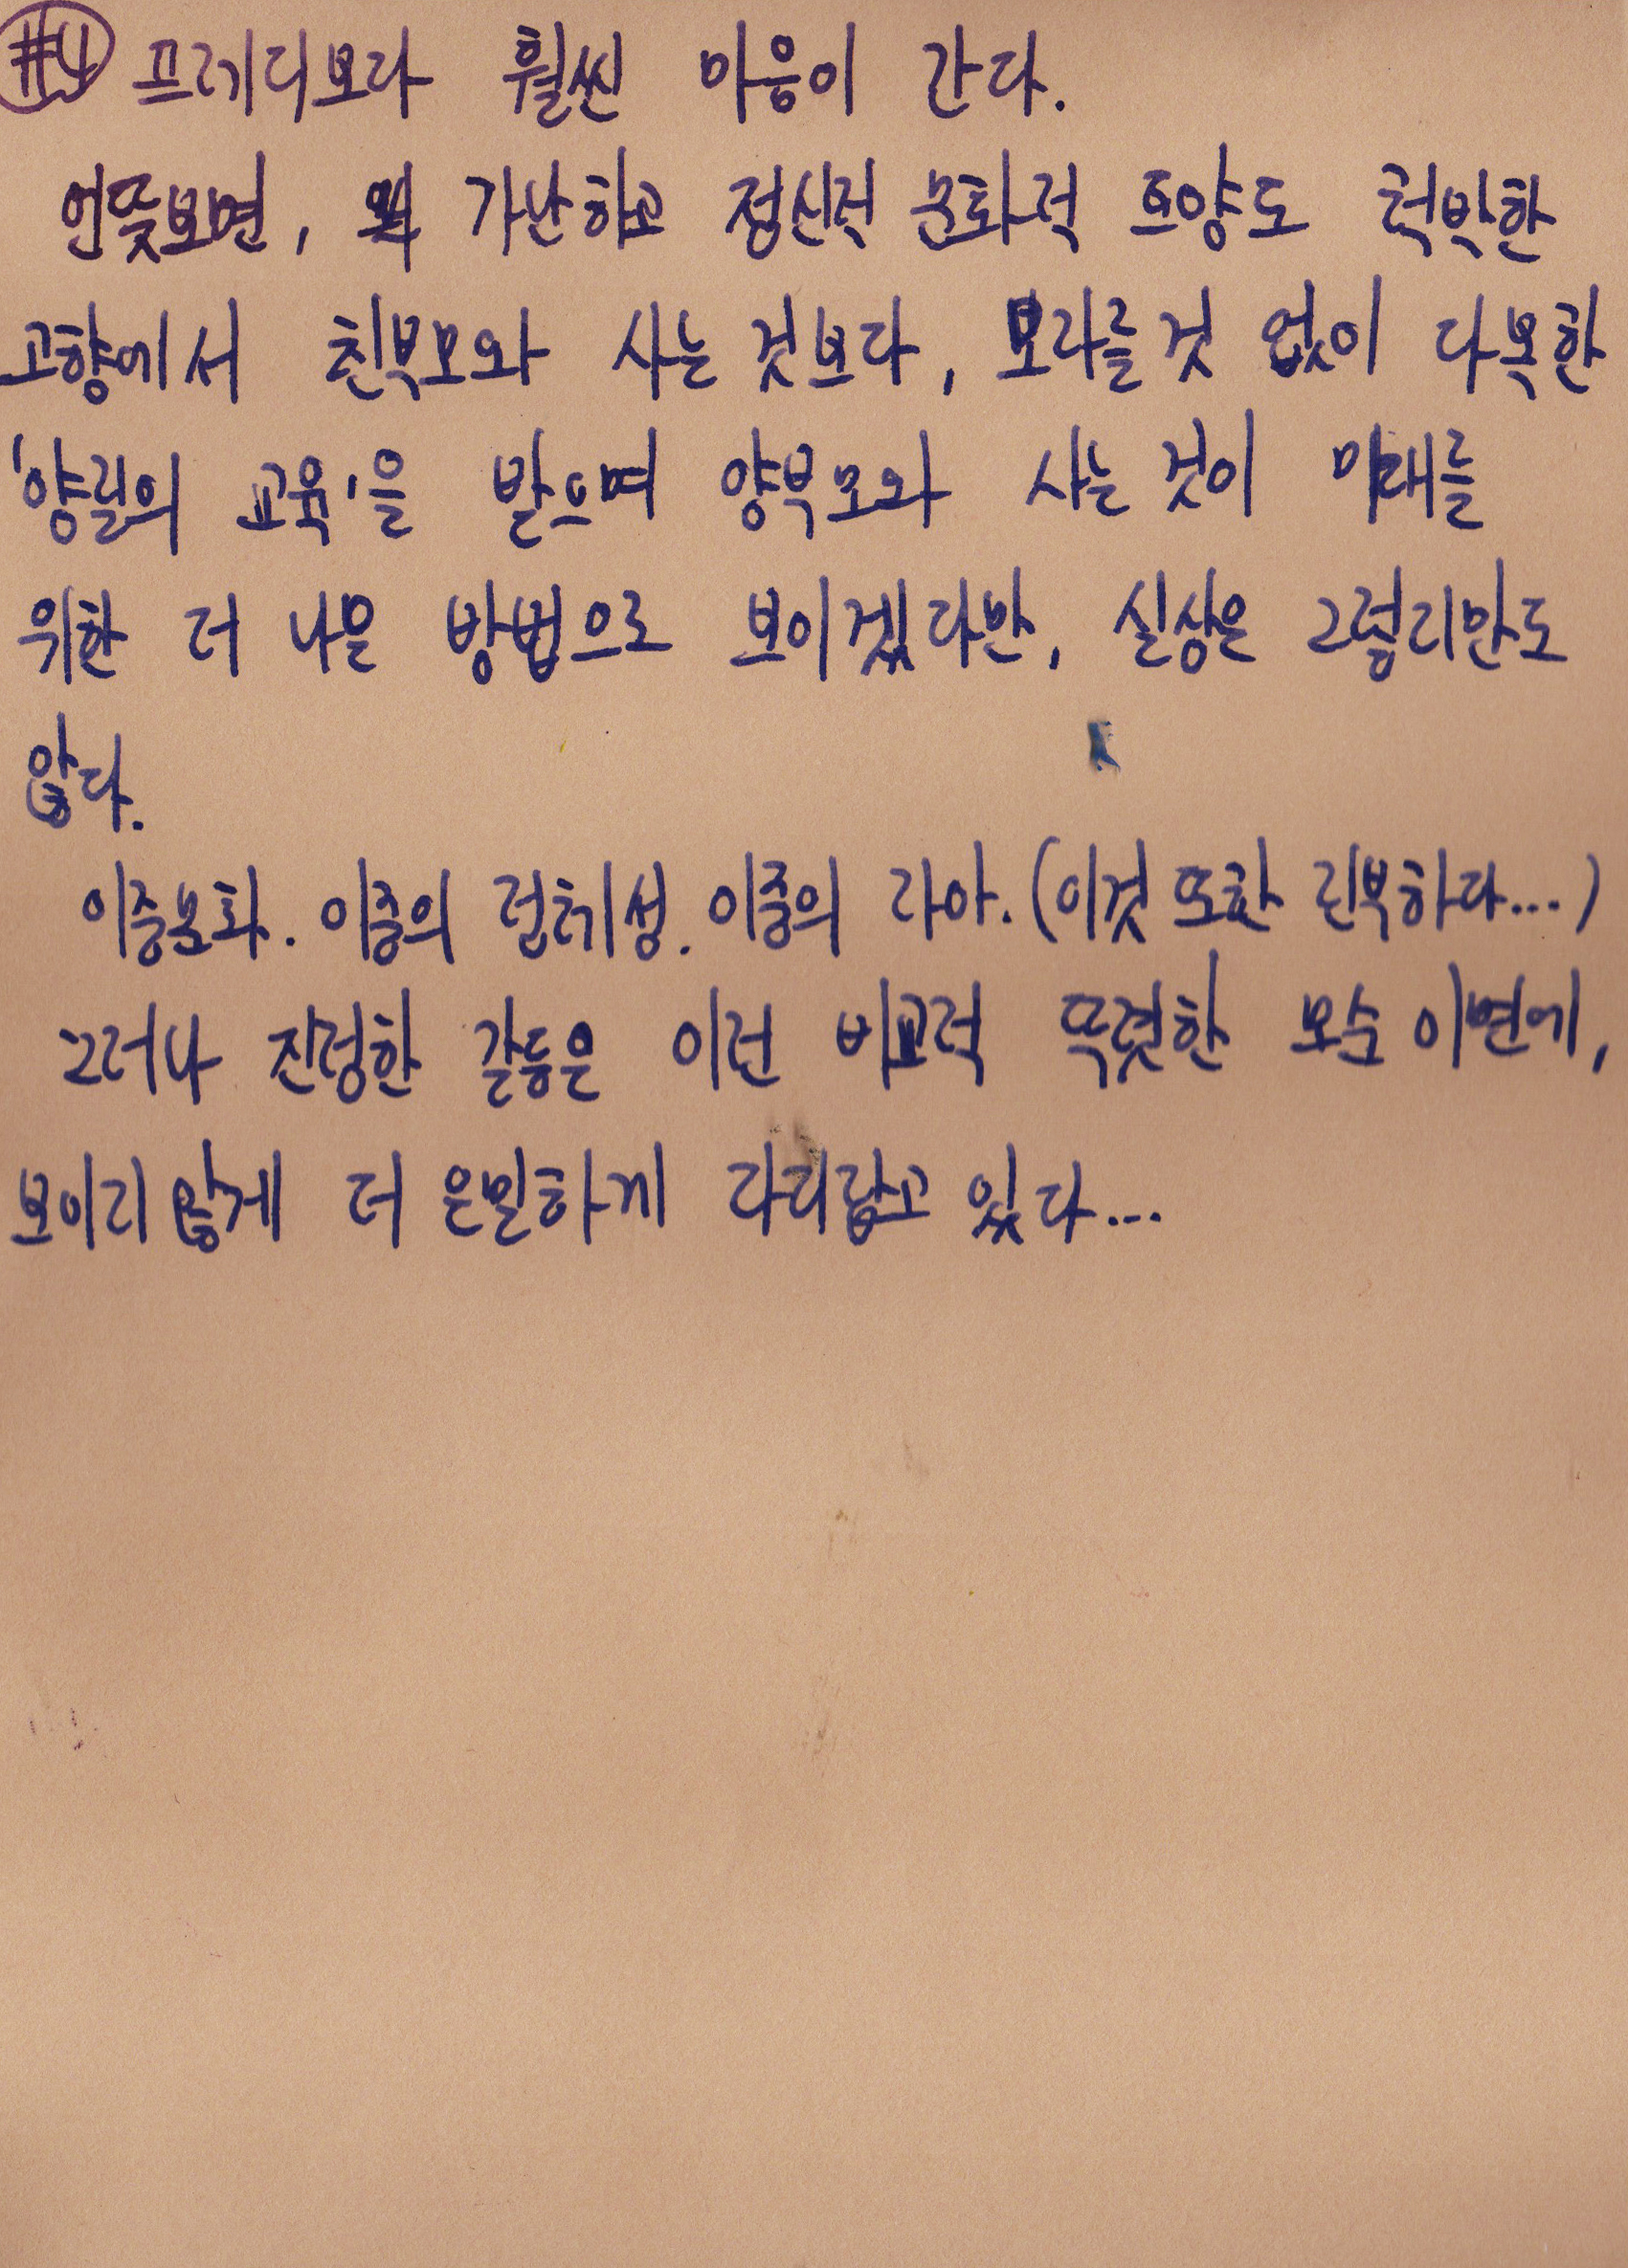 #4 프레디보다 훨씬 마음이 간다.
언뜻보면, 가난하고 정신적 문화적 토양도 척박한
고향에서 친부모와 사는 것보다, 모자를 것 없이 다복한
'양질의 교육'을 받으며 양부모와 사는 것이 미래를
위한 더 나은 방법으로 보이겠다만, 실상은 그렇지만도
않다.
이중문화. 이중의 정체성. 이중의 자아. (이것 또한 진부하다...)
그러나 진정한 갈등은 이런 비교적 뚜렷한 모순 이면에,
보이지 않게 더 은밀하게 자리잡고 있다...